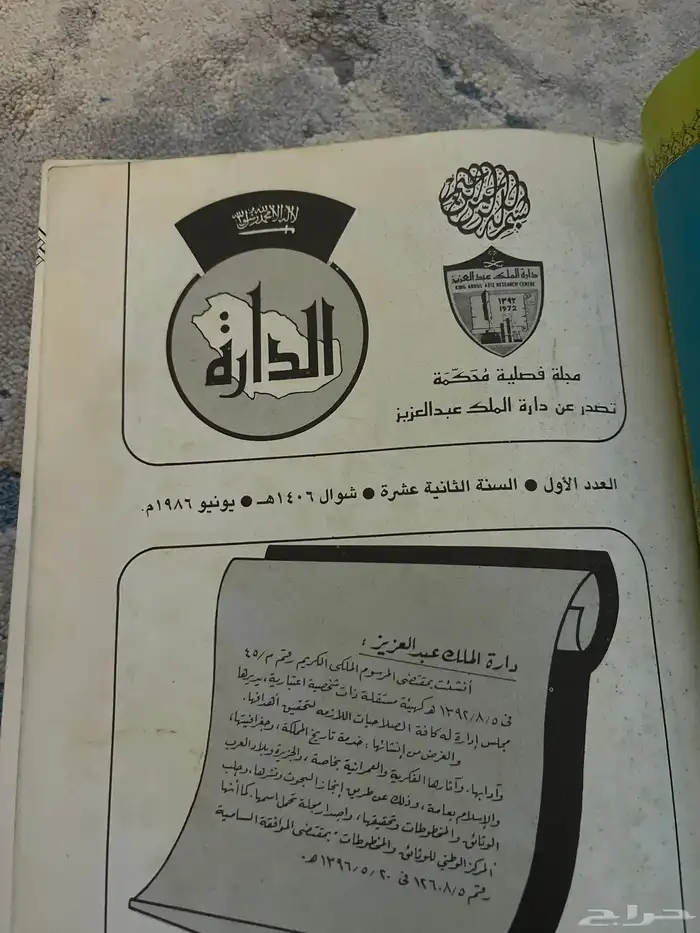 بسم الله الرحمن الرحيم
لا إله إلا الله محمد رسول الله
الدارة
دارة الملك عبدالعزيز
KING ABDUL AZIZ RESEARCH CENTRE
١٣٩٢
1972
مجلة فصلية مُحَكَّمَة
تصدر عن دارة الملك عبدالعزيز
العدد الأول ● السنة الثانية عشرة ● شوال ١٤٠٦هـ ● يونيو ١٩٨٦م.
دارة الملك عبدالعزيز :
أنشئت بمقتضى المرسوم الملكى الكريم رقم م/٤٥
فى ١٣٩٢/٨/٥ هـ كهيئة مستقلة ذات شخصية اعتبارية، يديرها
مجلس إدارة له كافة الصلاحيات اللازمه لتحقيق أهدافها.
والغرض من إنشائها : خدمة تاريخ المملكة ، وجغرافيتها،
وآدابها. وآثارها الفكرية والعمرانية بخاصة، والجزيرة وبلاد العرب
والإسلام بعامة ، وذلك عن طريق إنجاز البحوث ونشرها، وجلب
الوثائق والمخطوطات وتحقيقها، وإصدار مجلة تحمل اسمها. كما أنها
"المركز الوطني للوثائق والمخطوطات" بمقتضى الموافقة السامية
رقم ١٢٦٠٨/٥ فى ١٣٩٦/٥/٢٠ هـ.
حراج